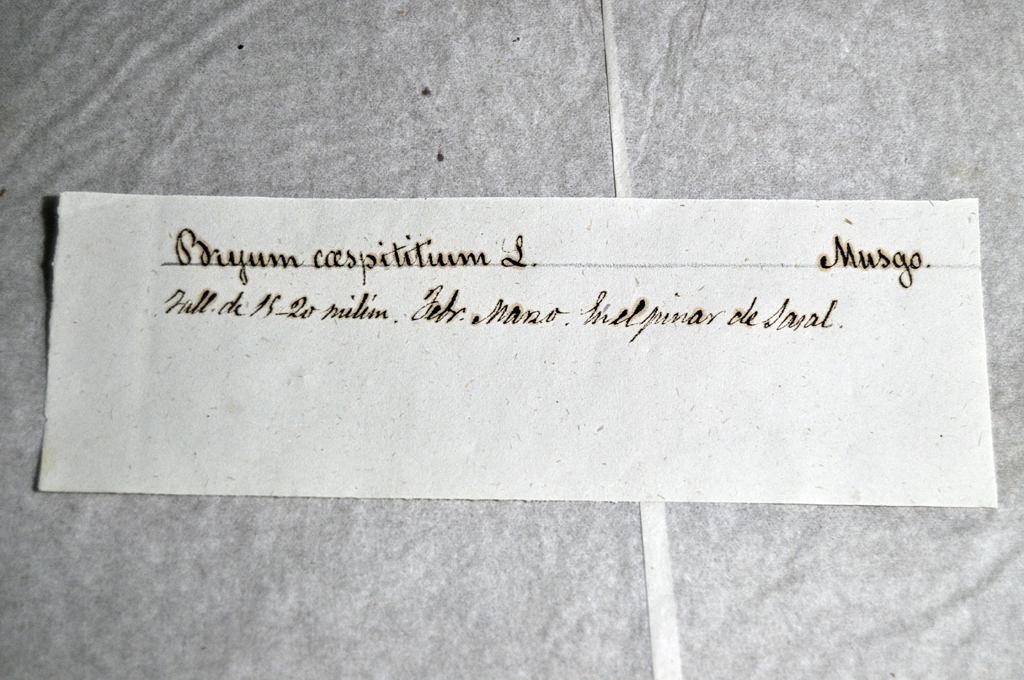 Bryum cæspititium L. Musgo.
Tall. de 15-20 milim. Febr. Marzo. En el pinar de Sasal.